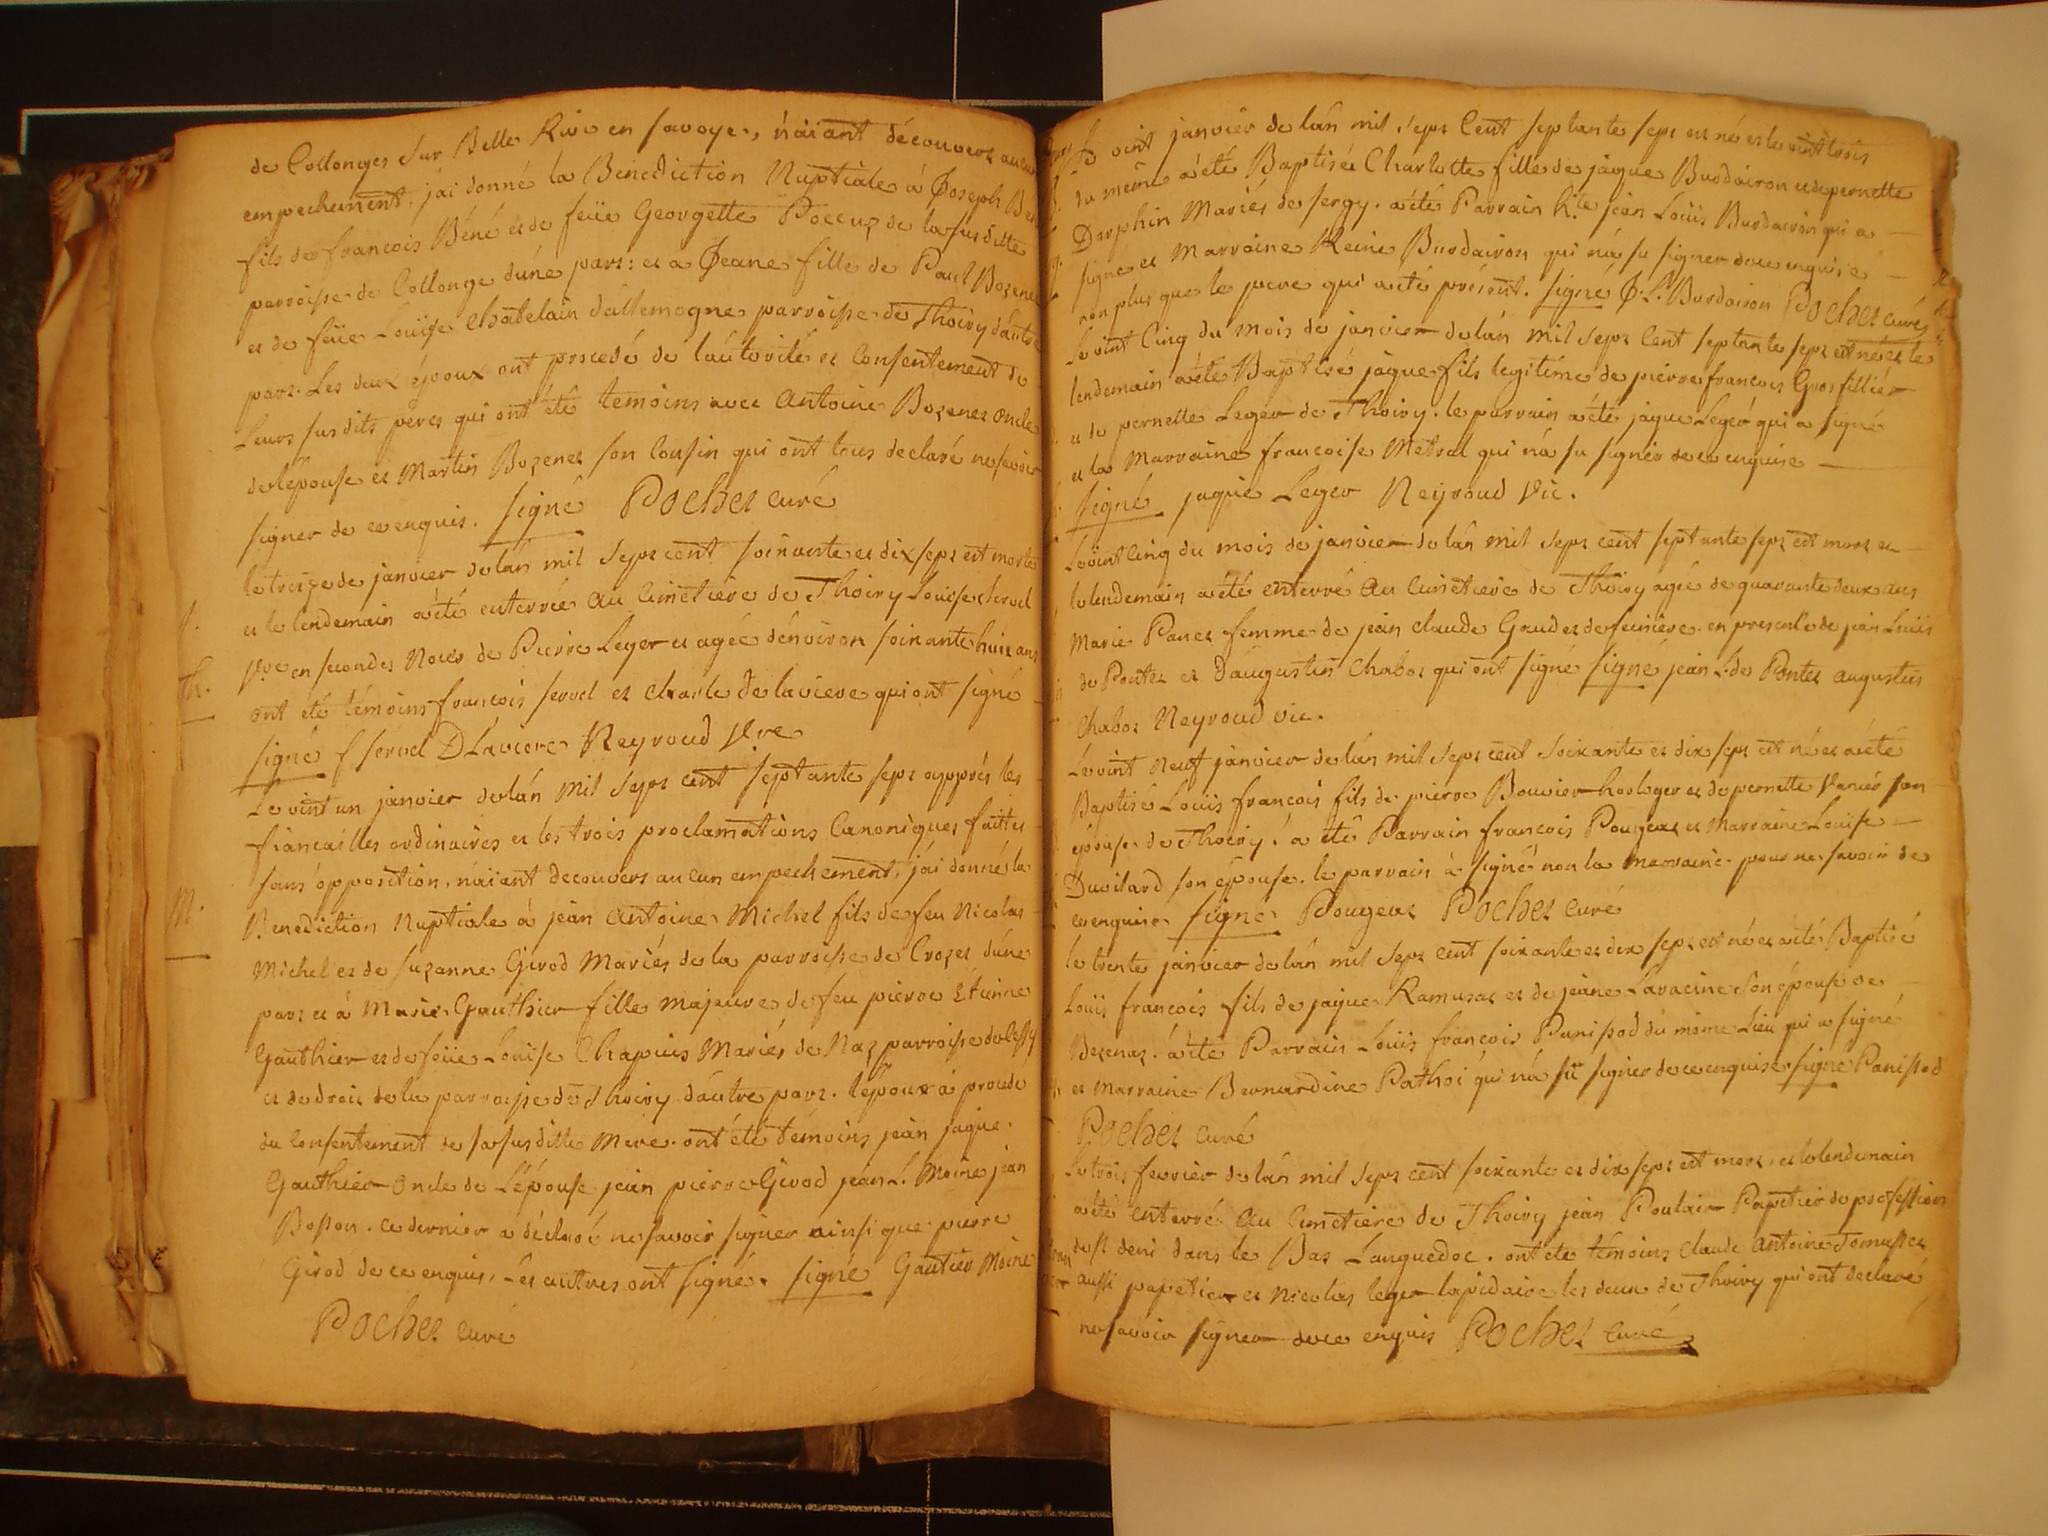 de Collonges sur Belle Rive en savoye, n'aiant découvert aucun
empechement, j'ai donné la Benediction Nuptiale à Joseph
fils de francois Béné et de feüe Georgette de la susditte
parroisse de Collonge d'une part: et a Jeane fille de Paul Bozenet
et de feüe Louïse Chatelain d'allemogne parroisse de Thoiry d'autre
part. Les deux époux ont procedé de l'autorité et Consentement de
Leurs susdits péres qui ont été temoins avec Antoine Bozenet oncle
de l'épouse et Martin Bozenet son Cousin qui ont tous declaré ne savoir
signer de ce enquis. signé Pochet curé
le treize de janvier de l'an mil sept cent soixante et dix sept est morte
et le lendemain a été enterrée au Cimetiere de Thoiry Louise servel
f.
Vve en secondes Noces de Pierre Leger et agée d'environ soixante huit ans
th.
ont été témoins francois servel et Charle Delaviere qui ont signé
signé f servel D Laviere Reyroud Vre
Le vint un janvier de l'an mil sept cent septante sept apprés les
fiancailles ordinaires et les trois proclamations Canoniques faittes
sans opposition, n'aiant decouvert aucun empechement, j'ai donné la
M.
Benediction Nuptiale à jean Antoine Michel fils de feu Nicolas
Michel et de suzanne Girod Mariés de la parroisse de Crozet d'une
part et à Marie Gauthier fille majeure de feu pierre Etienne
Gauthier et de feüe Louïse Chapuis Mariés de Naz parroisse de
et de droit de la parroisse de Thoiry d'autre part. l'époux à procedé
du Consentement de sa susditte Mere. ont été témoins jean jaque
Gauthier oncle de L'épouse jean pierre Girod jean L. Moine jean
Bosson. ce dernier a déclaré ne savoir signer ainsi que pierre
Girod de ce enquis, Les autres ont signé. signé Gautier Moine
Pochet curé
Le vint janvier de l'an mil sept Cent septante sept est née et le vint trois
du même a été Baptisée Charlotte fille de jaque Burdairon et de pernette
Dorphin Mariés de sergy. a été Parrain jean Loüis Burdairon qui a
signé et Marraine Reine Burdairon qui n'a su signer de ce enquise
non plus que le pere qui a été présent. signé J. L. Burdairon Pochet curé
Le vint Cinq du mois de janvier de l'an mil sept Cent septante sept est né et le
lendemain a été Baptisé jaque fils legitime de pierre francois Grosfillier
et de pernette Leger de Thoiry. le parrain a été jaque Leger qui a signé
et la Marraine francoise Metral qui n'a su signer de ce enquise
signé jaque Leger Reyroud Vic.
Le vint cinq du mois de janvier de l'an mil sept cent septante sept est mort et
le lendemain a été enterré au Cimetiere de Thoiry agé de quarante deux ans
Marie Panet femme de jean claude Gaudet de feuniere. en presence de jean Luïs
de Pontet et d'augustin Chabot qui ont signé signé jean L. de Pontet augustin
Chabot Reyroud vic.
Le vint Neuf janvier de l'an mil sept cent soixante et dix sept est né et a été
Baptisé Loüis francois fils de pierre Bouvier horloger et de pernette son
épouse de Thoiry. a été Parrain francois Pougeat et Marraine Louïse
Duvilard son épouse. le parrain à signé non la marraine pour ne savoir de
ce enquise. signé Pougeat Pochet curé
le trente janvier de l'an mil sept cent soixante et dix sept est né et a été Baptisé
Loüis francois fils de jaque Ramusat et de jeane Laracine son épouse de
Bezenaz. a été Parrain Loüis francois Panissod du même Lieu qui a signé
et Marraine Bernardine Pathoi qui n'a sû signer de ce enquise signé Panissod
Pochet curé
Le trois fevrier de l'an mil sept cent soixante et dix sept est mort, et le lendemain
a été enterré au Cimetiere de Thoiry jean Poulain Papetier de profession
de st deni dans le Bas Languedoc. ont été témoins Claude Antoine
aussi papetier et Nicolas leger lapidaire les deux de Thoiry qui ont declaré
ne savoir signer de ce enquis Pochet curé